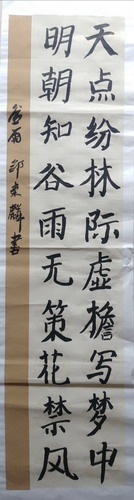 天点纷林际虚檐写梦中
明朝知谷雨无策花禁风
谷雨 邵来麟书